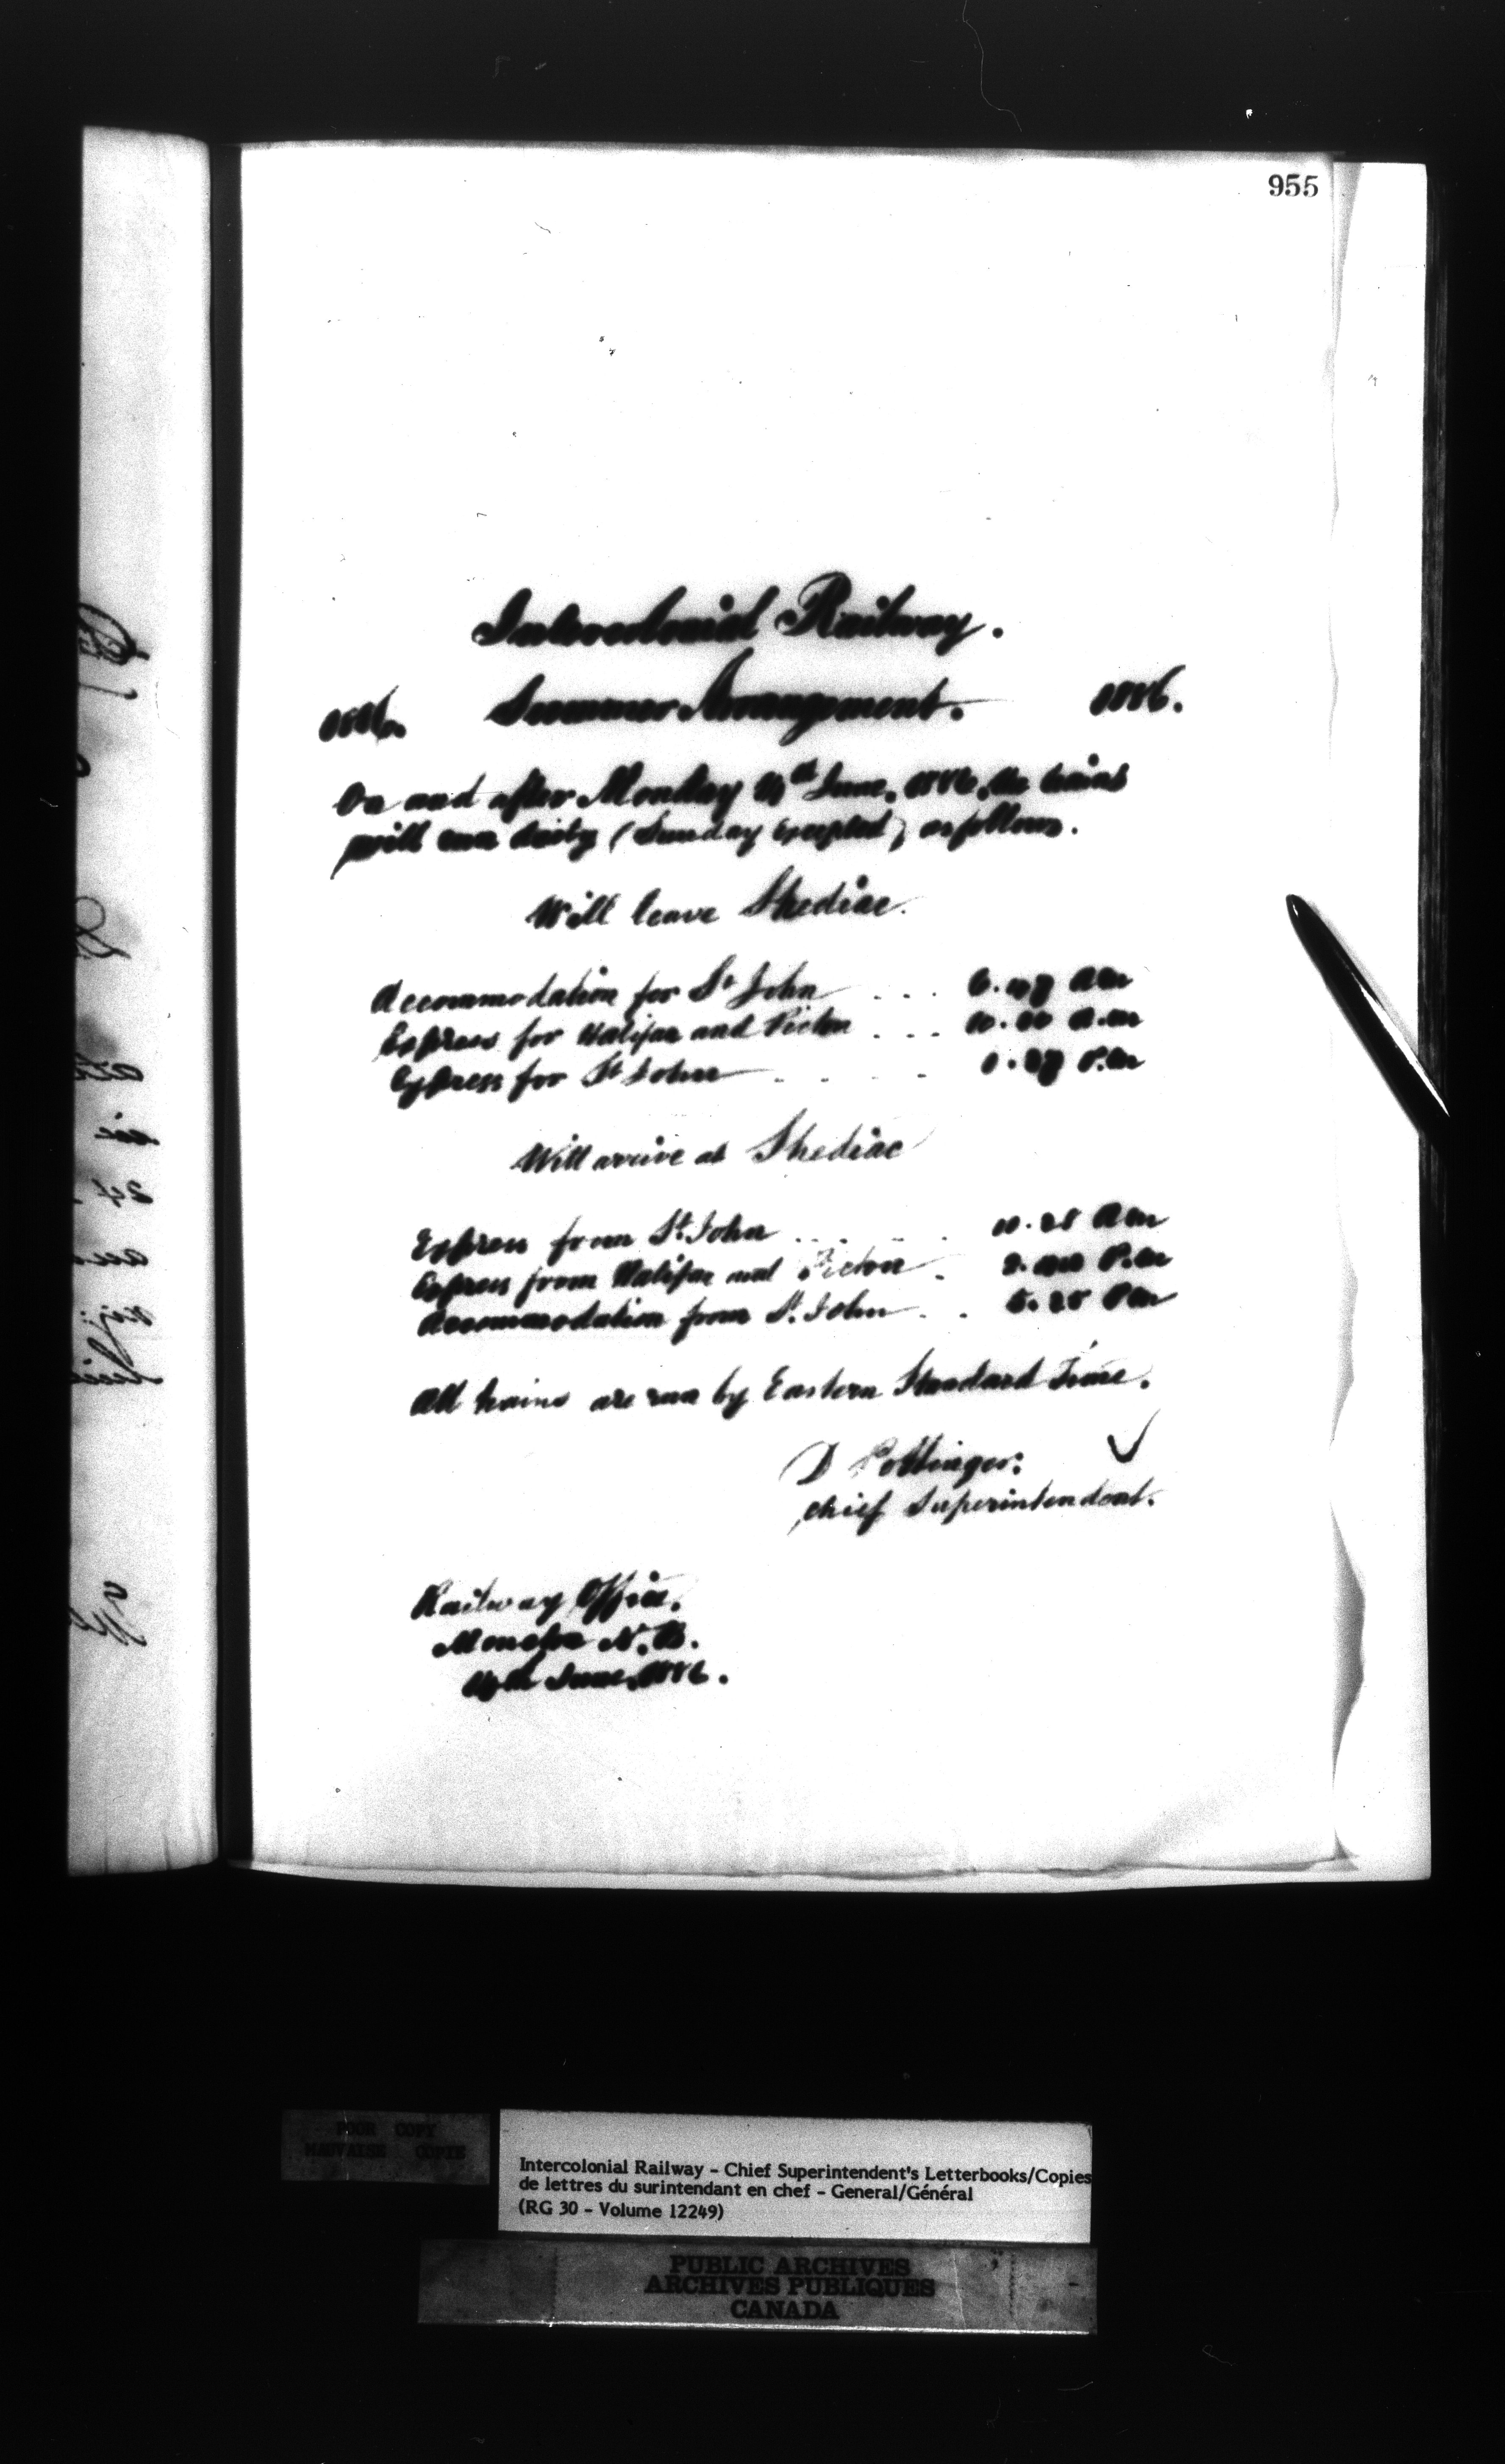 955
Intercolonial Railway.
1886. Summer Arrangement. 1886.
On and after Monday 14th June, 1886, the trains
will run daily (Sunday excepted) as follows.
Will leave Shediac.
Accommodation for St John . . . 6. A m
Express for Halifax and Pictou . . . a.m
Express for St John . . . . P.m
Will arrive at Shediac
Express from St. John . . . . 10.25 A m
Express from Halifax and Pictou . P.m
Accommodation from St. John . . 5.25 P m
All trains are run by Eastern Standard Time.
D Pottinger:
Chief Superintendent.
Railway Office,
Moncton N.B.
June, 1886.
POOR COPY
MAUVAISE COPIE
Intercolonial Railway - Chief Superintendent's Letterbooks/Copies
de lettres du surintendant en chef - General/Général
(RG 30 - Volume 12249)
PUBLIC ARCHIVES
ARCHIVES PUBLIQUES
CANADA